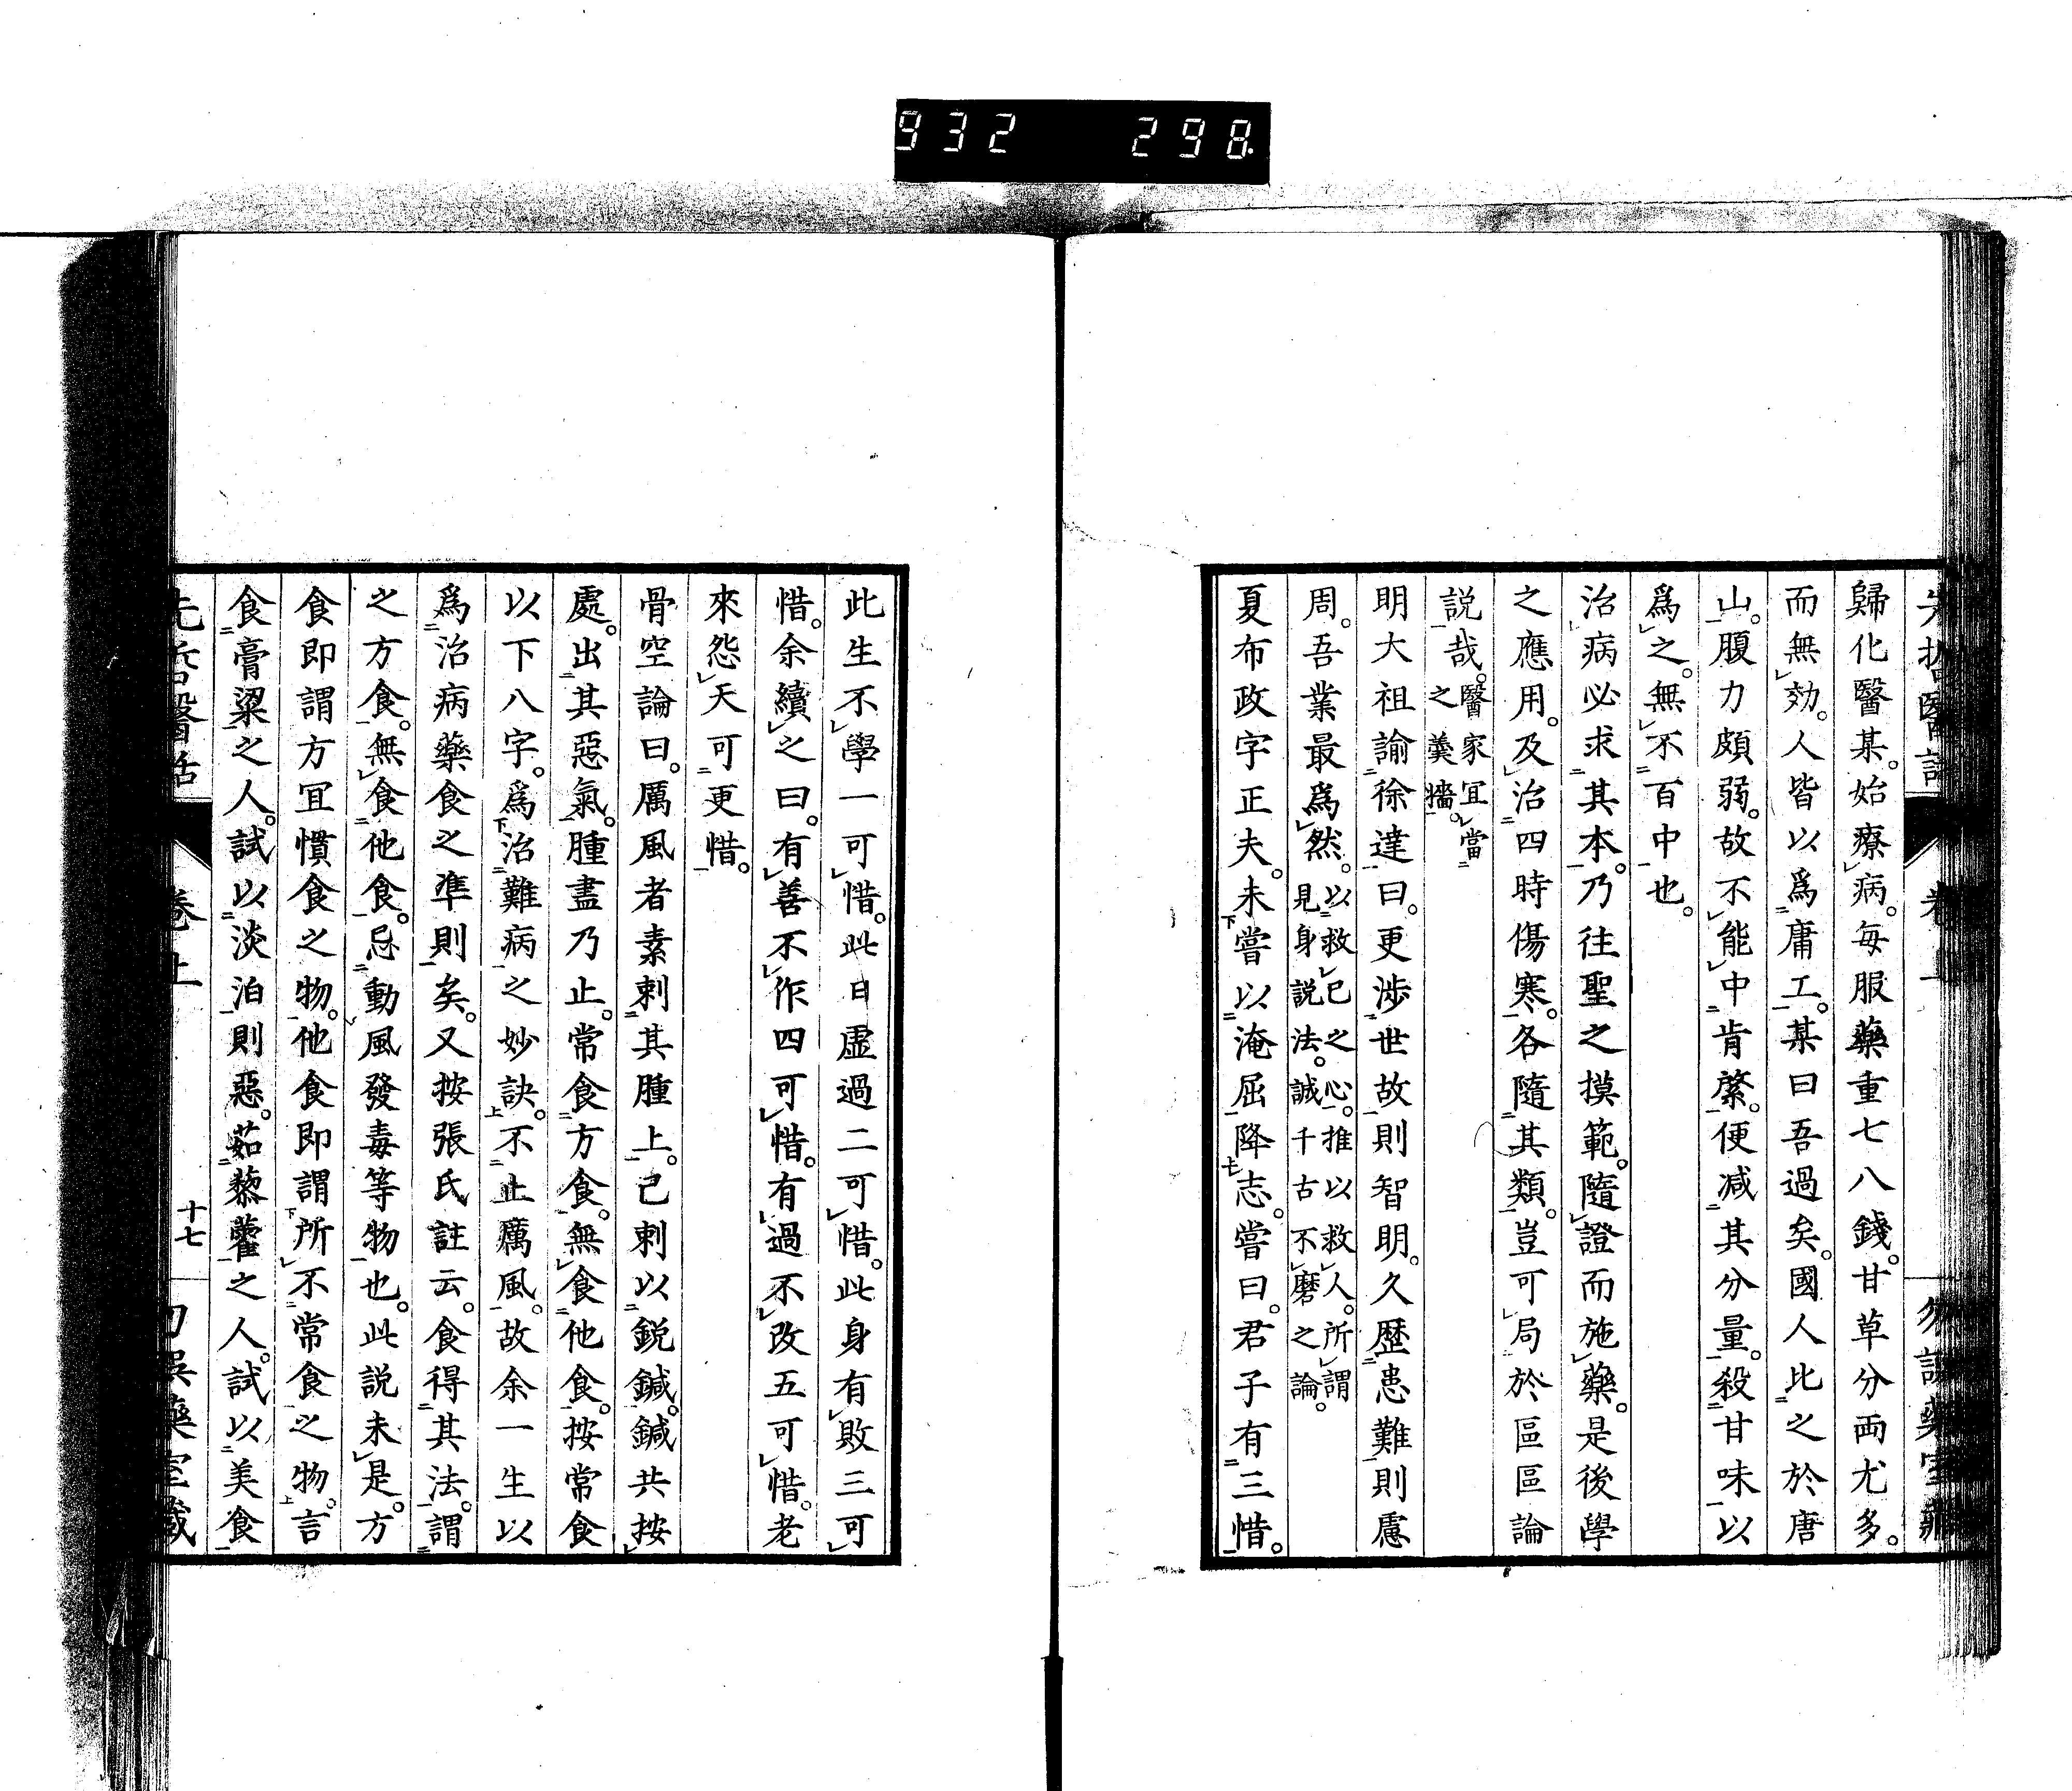 932 298.
先哲醫話 卷上 勿誤藥室藏
歸化醫某。始療病。每服藥重七八錢。甘草分兩尤多。
而無効。人皆以爲庸工。某曰吾過矣。國人比之於唐
山。腹力頗弱。故不能中肯綮。便减其分量。殺甘味以
爲之。無不百中也。
治病必求其本。乃往聖之摸範。隨證而施藥。是後學
之應用。及治四時傷寒。各隨其類。豈可局於區區論
説哉。醫家宜當之羹牆。
明大祖諭徐達曰。更渉世故則智明。久歴患難則慮
周。吾業最爲然。以救己之心。推以救人。所謂見身説法。誠千古不磨之論。
夏布政字正夫。未嘗以淹屈降志。嘗曰。君子有三惜。
此生不學一可惜。此日虚過二可惜。此身有敗三可
惜。余續之曰。有善不作四可惜。有過不改五可惜。老
來怨天可更惜。
骨空論曰。厲風者素刺其腫上。已刺以鋭鍼。鍼共按
處。出其惡氣。腫盡乃止。常食方食。無食他食。按常食
以下八字。爲治難病之妙訣。不止癘風。故余一生以
爲治病藥食之準則矣。又按張氏註云。食得其法。謂
之方食。無食他食。忌動風發毒等物也。此説未是。方
食即謂方宜慣食之物。他食即謂所不常食之物。言
食膏粱之人。試以淡泊則惡。茹藜藿之人。試以美食
先哲醫話 卷上 十七 勿誤藥室藏